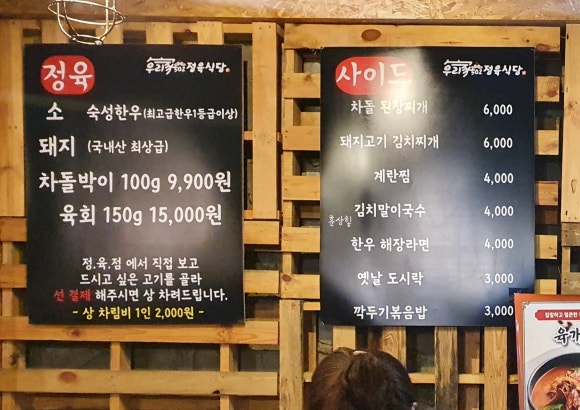 정육
정육식당
소 숙성한우(최고급한우1등급이상)
돼지 (국내산 최상급)
차돌박이 100g 9,900원
육회 150g 15,000원
정.육.점 에서 직접 보고
드시고 싶은 고기를 골라
선 결제 해주시면 상 차려드립니다.
- 상 차림비 1인 2,000원 -
사이드
정육식당
차돌 된장찌개 6,000
돼지고기 김치찌개 6,000
계란찜 4,000
김치말이국수 4,000
한우 해장라면 4,000
옛날 도시락 3,000
깍두기볶음밥 3,000